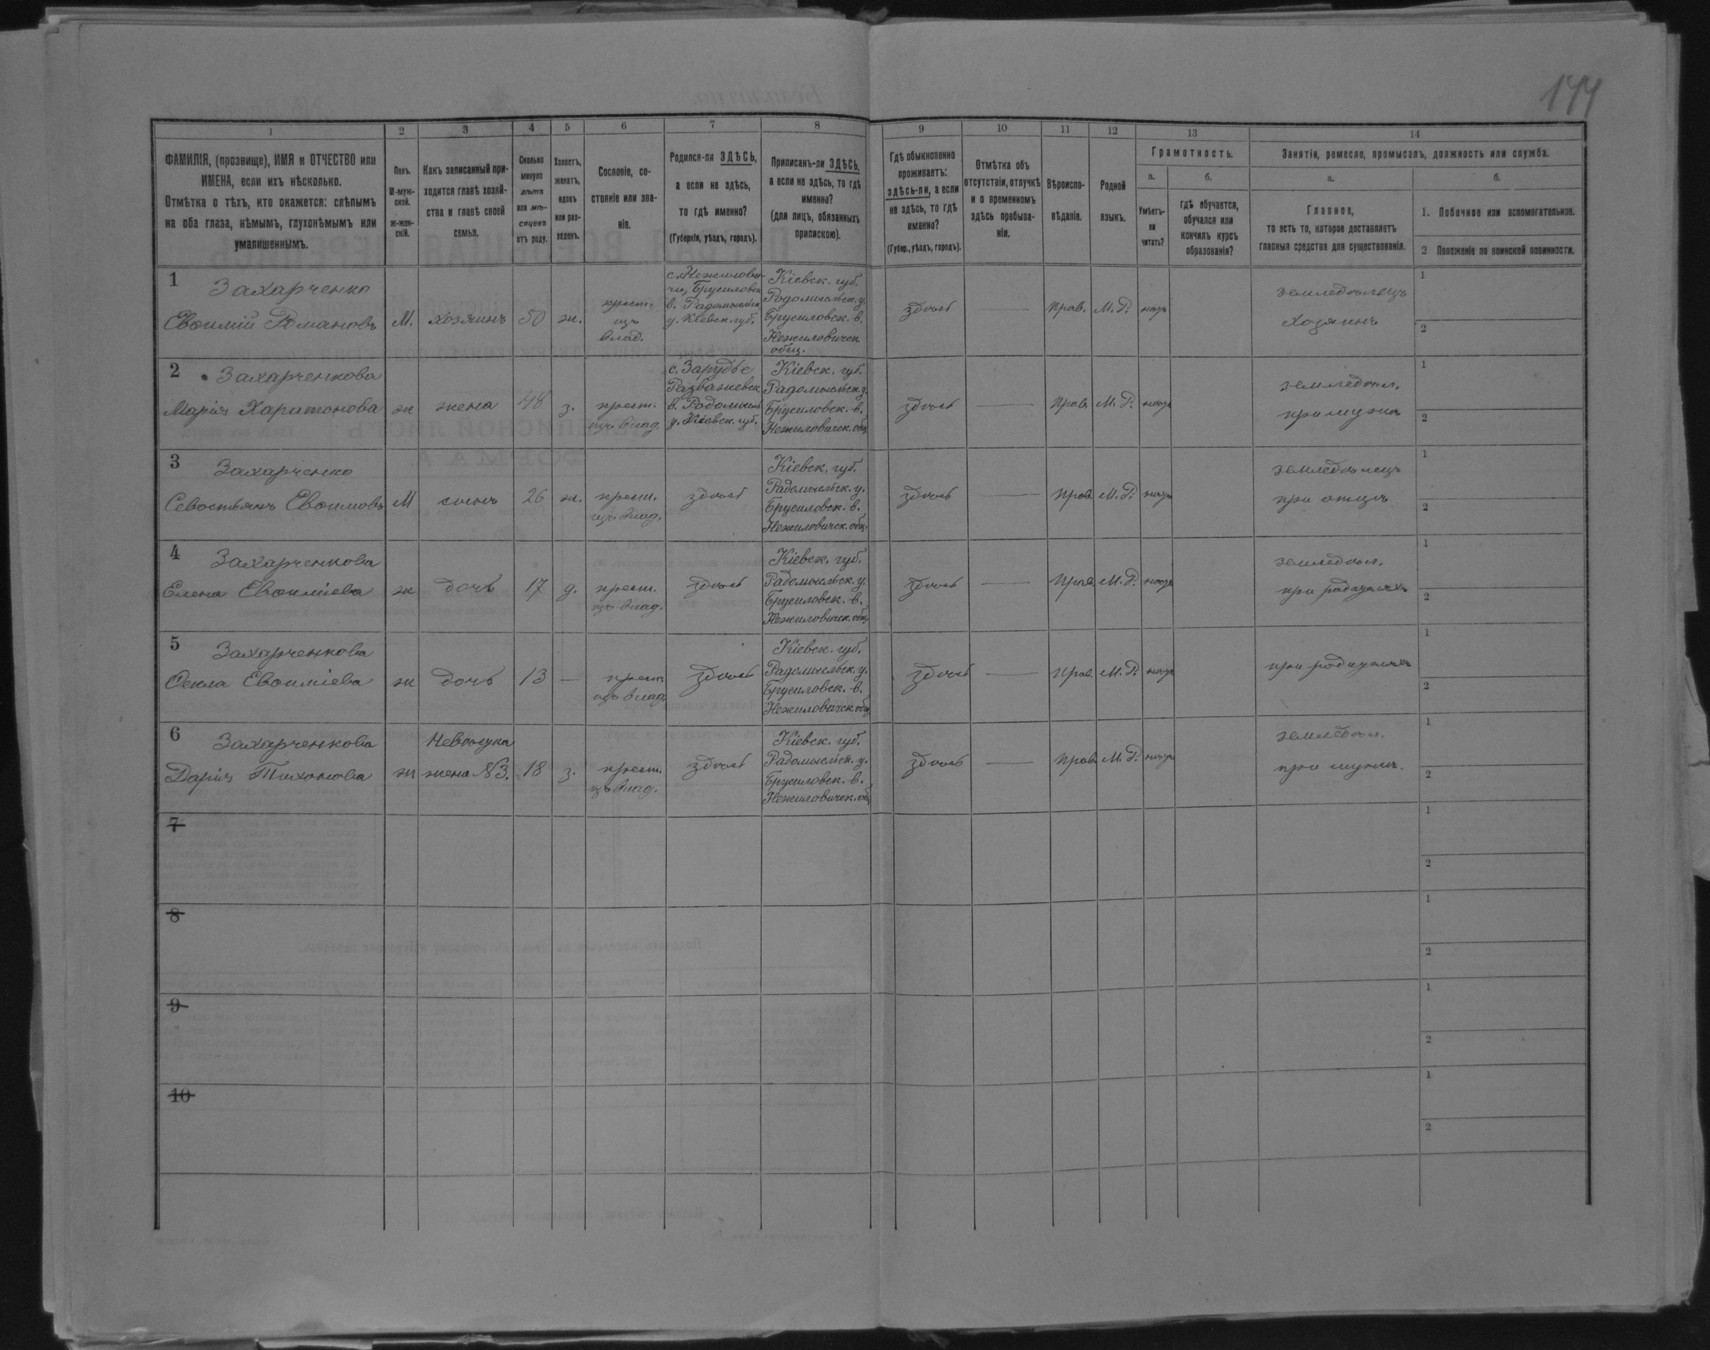 144
1 2 3 4 5 6 7 8 9 10 11 12 13 14
ФАМИЛІЯ, (прозвище), ИМЯ и ОТЧЕСТВО или
ИМЕНА, если ихъ нѣсколько.
Отмѣтка о тѣхъ, кто окажется: слѣпымъ
на оба глаза, нѣмымъ, глухонѣмымъ или
умалишеннымъ.
Полъ.
М-муж-
ской.
Ж-жен-
скій.
Какъ записанный при-
ходится главѣ хозяй-
ства и главѣ своей
семьи.
Сколько
минуло
лѣтъ
или мѣ-
сяцевъ
отъ роду.
Холостъ,
женатъ,
вдовъ
или раз-
веденъ.
Сословіе, со-
стояніе или зва-
ніе.
Родился-ли ЗДѢСЬ,
а если не здѣсь,
то гдѣ именно?
(Губернія, уѣздъ, городъ).
Приписанъ-ли ЗДѢСЬ,
а если не здѣсь, то гдѣ
именно?
(для лицъ, обязанныхъ
припискою).
Гдѣ обыкновенно
проживаетъ:
здѣсь-ли, а если
не здѣсь, то гдѣ
именно?
(Губер., уѣздъ, городъ).
Отмѣтка объ
отсутствіи, отлучкѣ
и о временномъ
здѣсь пребыва-
ніи.
Вѣроиспо-
вѣданіе.
Родной
языкъ.
Грамотность.
а. б.
Умѣетъ-
ли
читать?
гдѣ обучается,
обучался или
кончилъ курсъ
образованія?
Занятіе, ремесло, промыселъ, должность или служба.
а. б.
Главное,
то есть то, которое доставляетъ
главныя средства для существованія.
1. Побочное или вспомогательное.
2 Положеніе по воинской повинности.
1
Захарченко
Евѳимій Романовъ
М.
хозяинъ
50
ж.
крест.
изъ
влад.
с. Нежилови-
чи, Брусиловск.
в. Радомысльск.
у. Кіевск. губ.
Кіевск. губ.
Радомысльск. у.
Брусиловск. в.
Нежиловичск.
общ.
здѣсь
—
Прав.
М. Р.
нѣтъ
земледѣлецъ
хозяинъ
1
2
2
Захарченкова
Марія Харитонова
ж
жена
48
з.
крест.
изъ влад.
с. Зарудье
в. Радомысльск.
у. Кіевск. губ.
Кіевск. губ.
Радомысльск. у.
Брусиловск. в.
Нежиловичск. общ.
здѣсь
—
Прав.
М. Р.
нѣтъ
земледѣл.
при мужѣ
1
2
3
Захарченко
Севостьянъ Евѳимовъ
М
сынъ
26
ж.
крест.
изъ влад.
здѣсь
Кіевск. губ.
Радомысльск. у.
Брусиловск. в.
Нежиловичск. общ.
здѣсь
—
Прав.
М. Р.
нѣтъ
земледѣлецъ
при отцѣ
1
2
4
Захарченкова
Елена Евѳиміева
ж
дочь
17
д.
крест.
изъ влад.
здѣсь
Кіевск. губ.
Радомысльск. у.
Брусиловск. в.
Нежиловичск. общ.
здѣсь
—
Прав.
М. Р.
нѣтъ
земледѣл.
при родителѣ
1
2
5
Захарченкова
Ѳекла Евѳиміева
ж
дочь
13
—
крест.
изъ влад.
здѣсь
Кіевск. губ.
Радомысльск. у.
Брусиловск. в.
Нежиловичск. общ.
здѣсь
—
Прав.
М. Р.
нѣтъ
при родителѣ
1
2
6
Захарченкова
Дарія Тихонова
ж
Невѣстка
жена №3.
18
з.
крест.
изъ влад.
здѣсь
Кіевск. губ.
Радомысльск. у.
Брусиловск. в.
Нежиловичск. общ.
здѣсь
—
Прав.
М. Р.
нѣтъ
земледѣл.
при мужѣ.
1
2
7
1
2
8
1
2
9
1
2
10
1
2